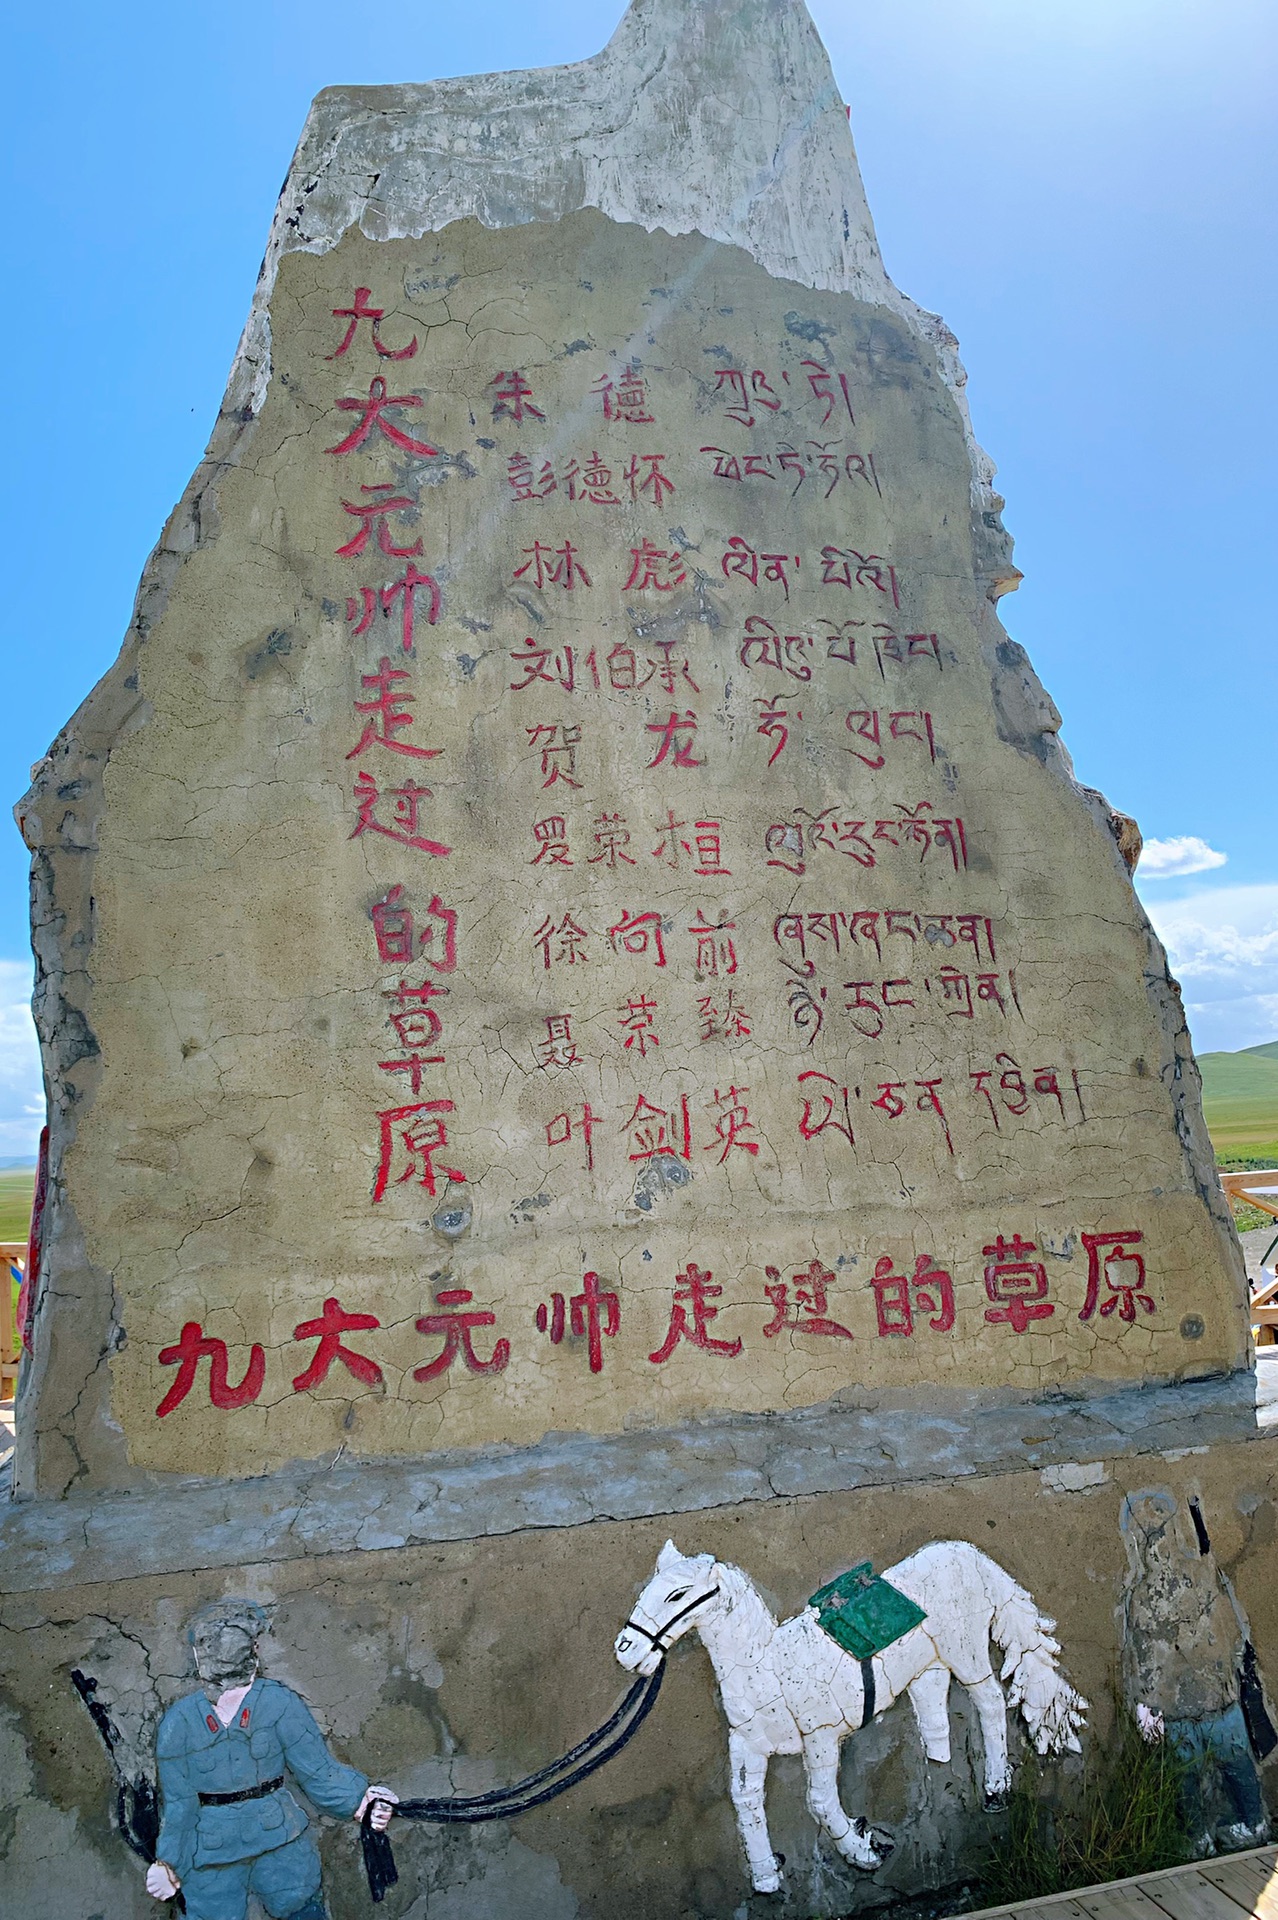 九大元帅走过的草原
朱德 ཀྲུའུ་ཏེ།
彭德怀 ཕེང་ཏེ་ཧོལ།
林彪 ལིན་པིའོ།
刘伯承 ལིའུ་པོ་ཁྲེང།
贺龙 ཧོ་ལུང།
罗荣桓 ལུའོ་རུང་ཧོན།
徐向前 ཞུས་ཞང་ཆན།
聂荣臻 ཉེ་རུང་ཀྲེན།
叶剑英 ཡེ་ཅན་དབྱིན།
九大元帅走过的草原